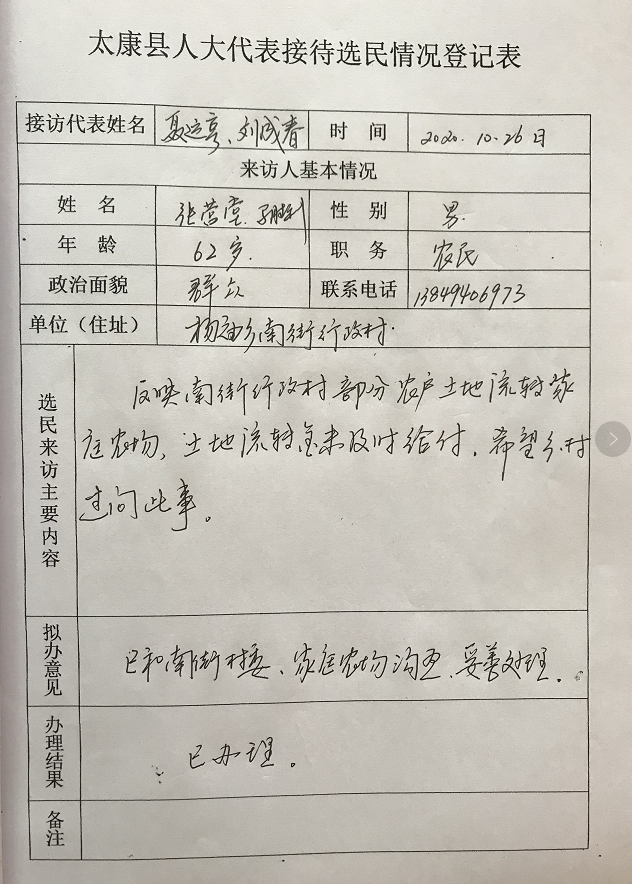 太康县人大代表接待选民情况登记表
接访代表姓名 聂运亭、刘成春 时 间 2020.10.26日
来访人基本情况
姓 名 张营堂. 性 别 男.
年 龄 62岁. 职 务 农民
政治面貌 群众 联系电话 13849406973
单位（住址） 杨庙乡南街行政村.
选民来访主要内容
反映南街行政村部分农户土地流转家
庭农场，土地流转金未及时给付，希望乡.村
过问此事。
拟办意见
已和南街村委、家庭农场沟通、妥善处理.
办理结果
已办理。
备注